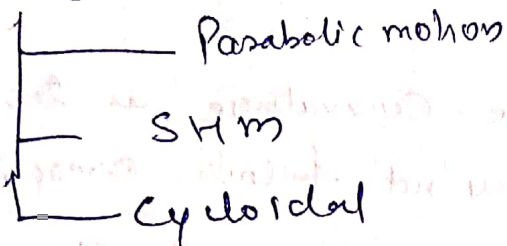 Parabolic motion
SHM
Cycloidal